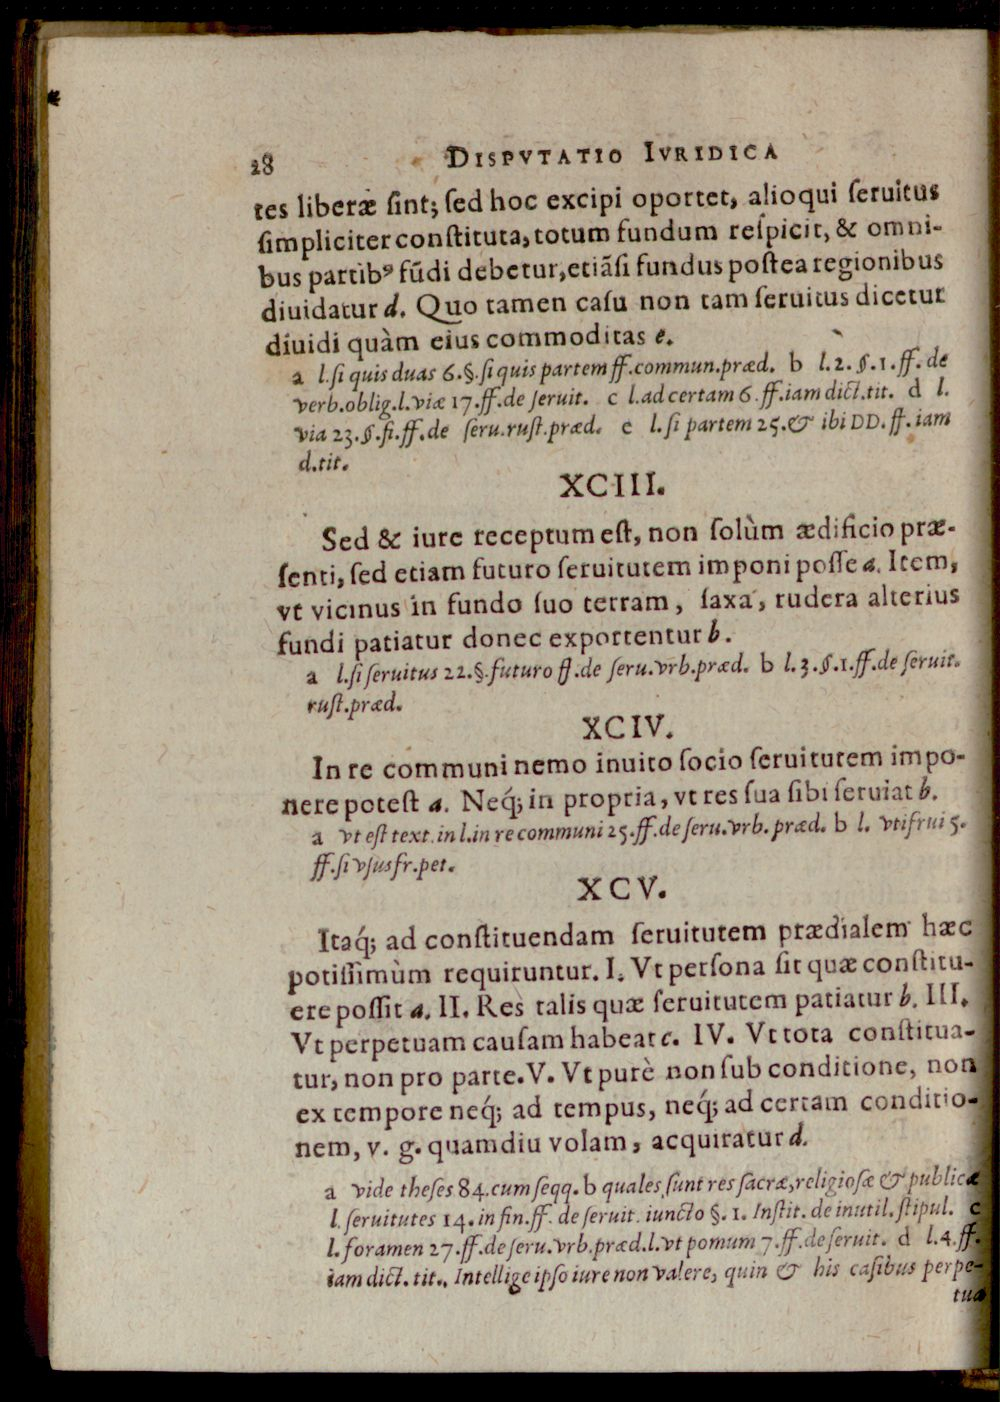 28 DISPVTATIO IVRIDICA
tes liberæ ſint; ſed hoc excipi oportet, alioqui ſeruitus
ſimpliciter conſtituta, totum fundum reſpicit, & omni-
bus partibꝰ fũdi debetur, etiãſi fundus poſtea regionibus
diuidatur d. Quo tamen caſu non tam ſeruitus dicetur
diuidi quàm eius commoditas e.
a l. ſi quis duas 6. §. ſi quis partem ff. commun. præd. b l. 2. §. 1. ff. de
verb. oblig. l. viæ 17. ff. de ſeruit. c l. ad certam 6. ff. iam dict. tit. d l.
via 23. §. fi. ff. de ſeru. ruſt. præd. e l. ſi partem 25. & ibi DD. ff. iam
d. tit.
XCIII.
Sed & iure receptum eſt, non ſolùm ædificio præ-
ſenti, ſed etiam futuro ſeruitutem imponi poſſe a. Item,
vt vicinus in fundo ſuo terram, ſaxa, rudera alterius
fundi patiatur donec exportentur b.
a l. ſi ſeruitus 22. §. futuro ff. de ſeru. vrb. præd. b l. 3. §. 1. ff. de ſeruit.
ruſt. præd.
XCIV.
In re communi nemo inuito ſocio ſeruitutem impo-
nere poteſt a. Neq́; in propria, vt res ſua ſibi ſeruiat b.
a vt eſt text. in l. in re communi 25. ff. de ſeru. vrb. præd. b l. vtifrui 5.
ff. ſi vſusfr. pet.
XCV.
Itaq́; ad conſtituendam ſeruitutem prædialem hæc
potiſſimùm requiruntur. I. Vt perſona ſit quæ conſtitu-
ere poſſit a. II. Res talis quæ ſeruitutem patiatur b. III.
Vt perpetuam cauſam habeat c. IV. Vt tota conſtitua-
tur, non pro parte. V. Vt purè non ſub conditione, non
ex tempore neq́; ad tempus, neq́; ad certam conditio-
nem, v. g. quamdiu volam, acquiratur d.
a vide theſes 84. cum ſeqq. b quales ſunt res ſacræ, religioſæ & publicæ
l. ſeruitutes 14. in fin. ff. de ſeruit. iuncto §. 1. Inſtit. de inutil. ſtipul. c
l. foramen 27. ff. de ſeru. vrb. præd. l. vt pomum 7. ff. de ſeruit. d l. 4. ff.
iam dict. tit., Intellige ipſo iure non valere, quin & his caſibus perpe-
tua